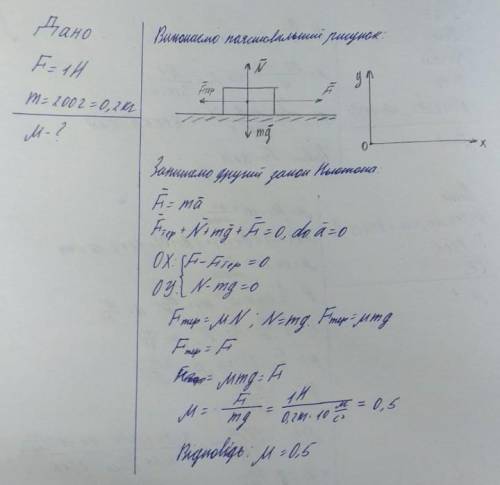 Дано
F = 1Н
m = 200г = 0,2кг
μ - ?
Виконаємо пояснювальний рисунок:
N̄
F̄тер
F̄
mḡ
y
0
x
Запишемо другий закон Ньютона:
F̄ = mā
F̄тер + N̄ + mḡ + F̄ = 0, бо ā = 0
OX: F - Fтер = 0
OУ: N - mg = 0
Fтер = μN ; N = mg. Fтер = μmg
Fтер = F
μmg = F
μ = F/mg = 1Н/(0,2кг · 10 м/с²) = 0,5
Відповідь: μ = 0,5